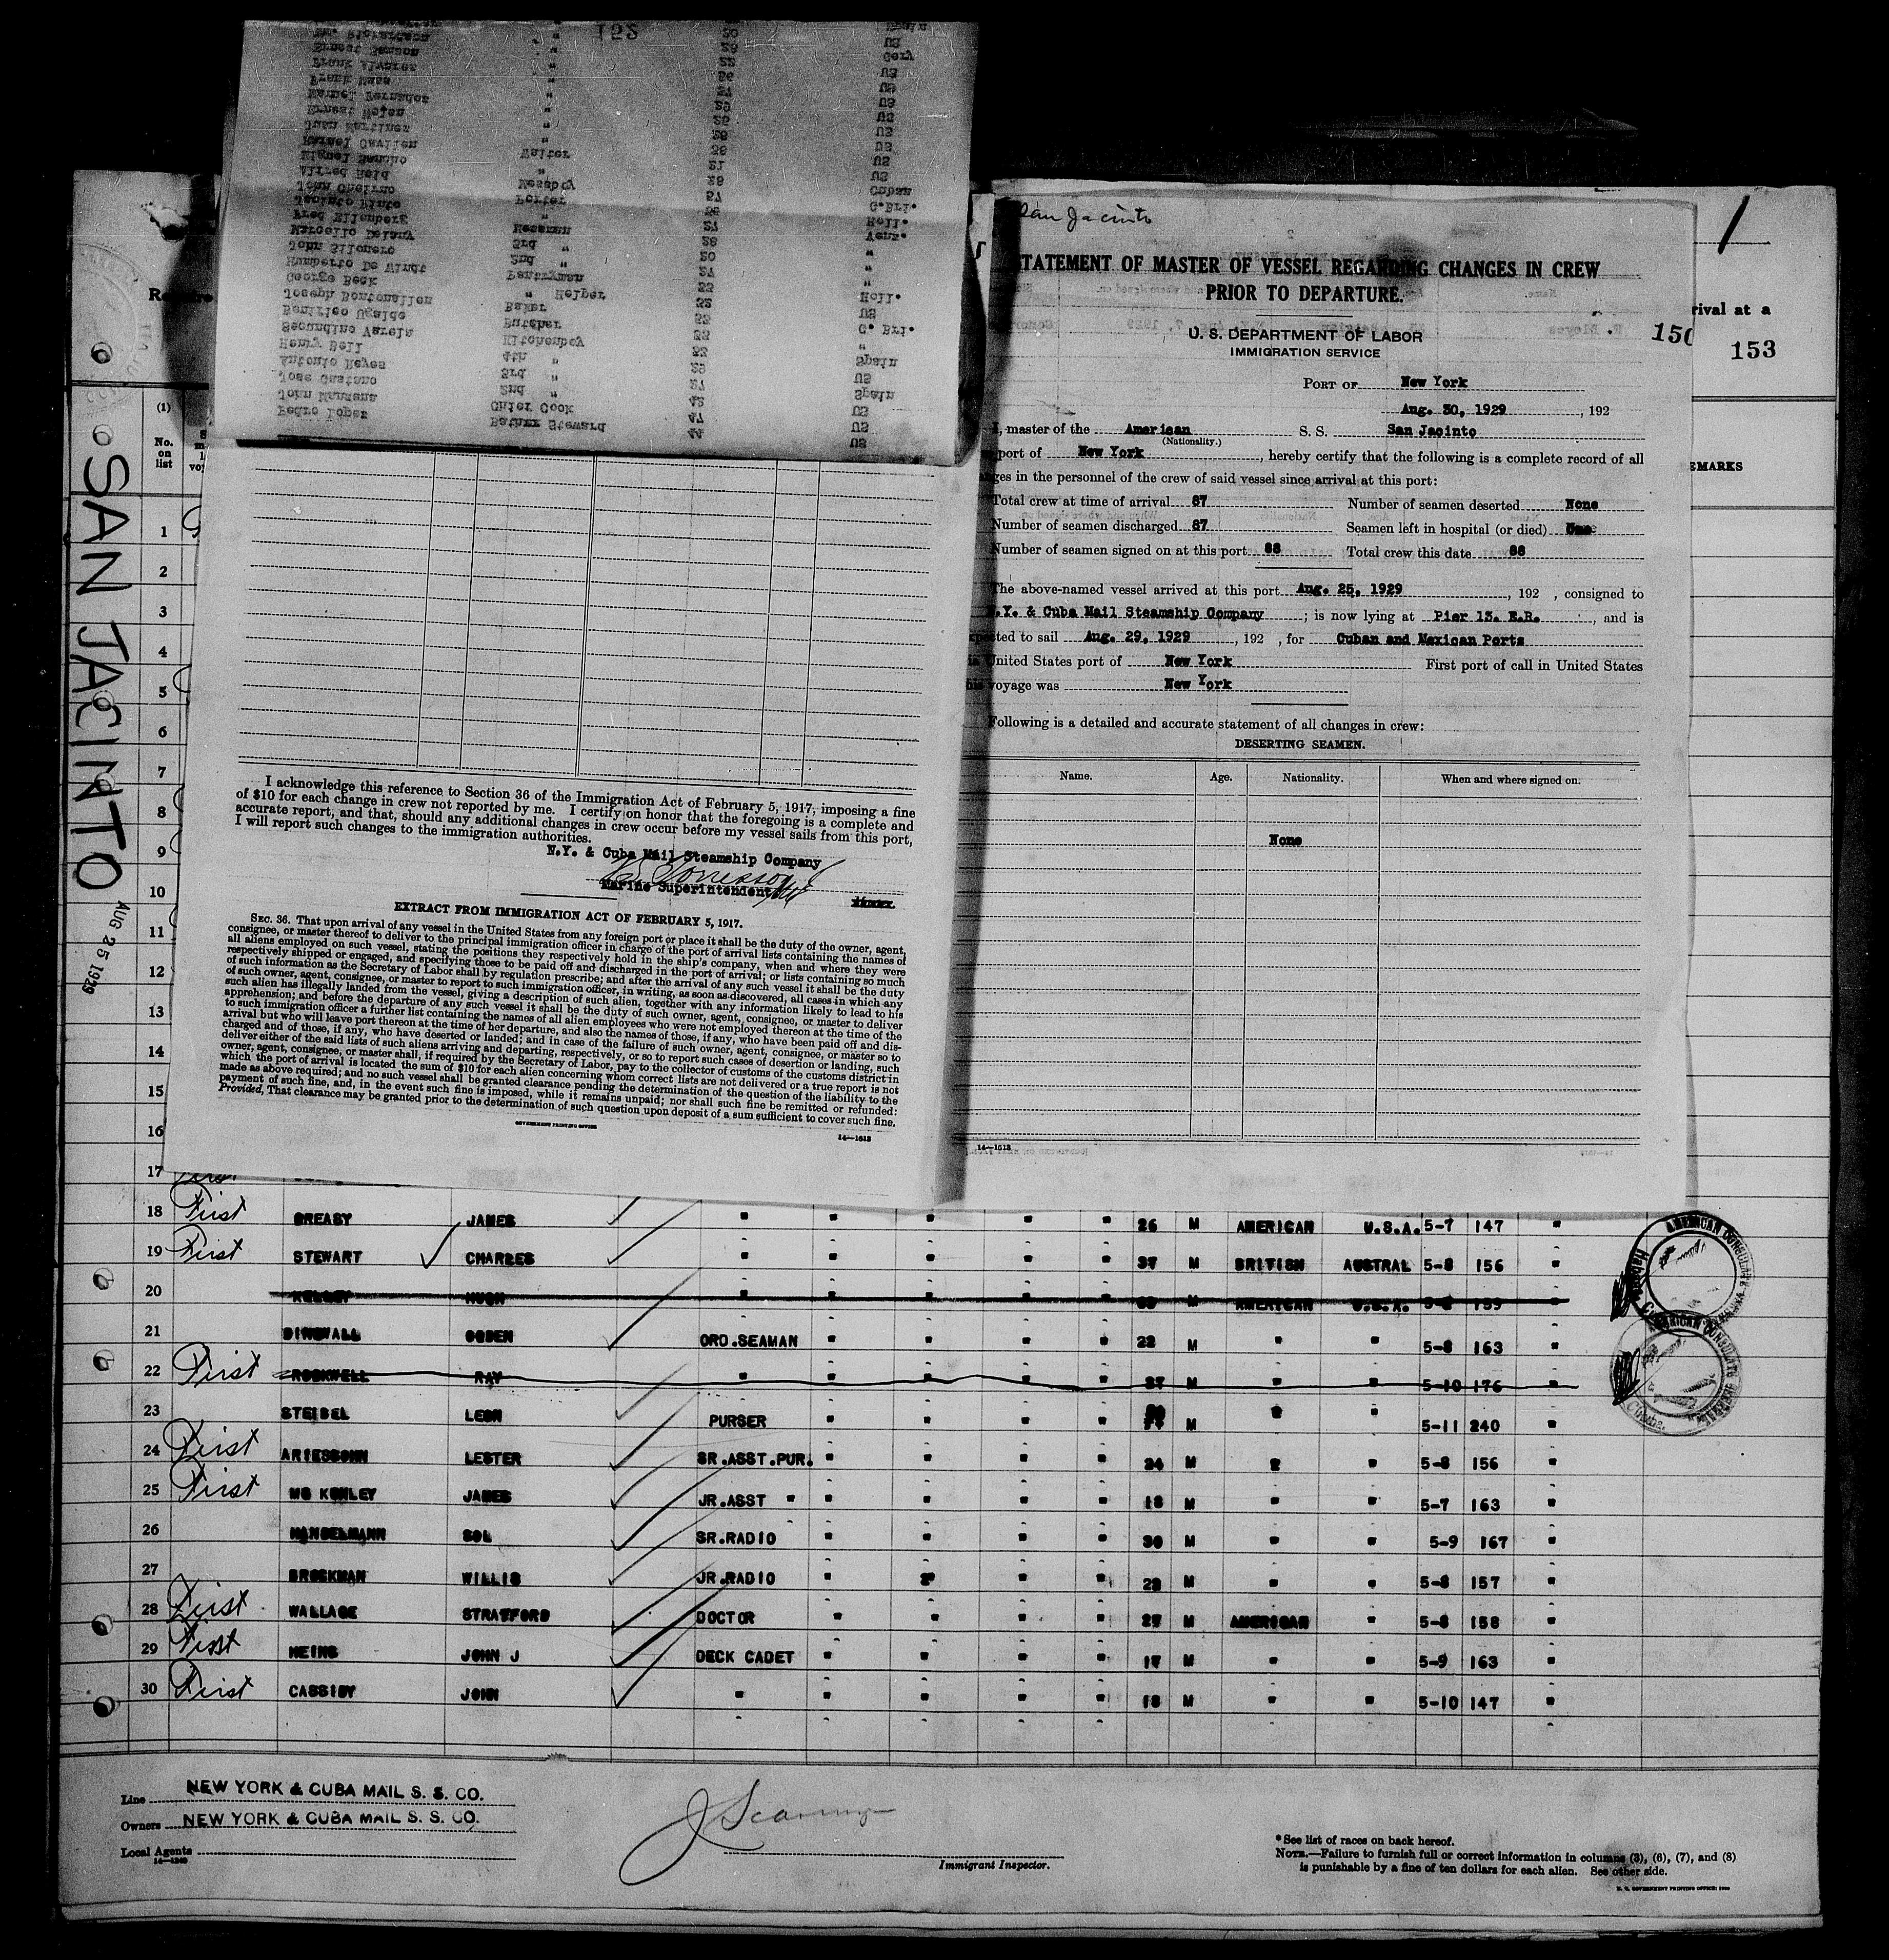 152
Wm. Richardson " 20
Ernest Samson " 28 US
Frank Alvarez " 22 Gery
Frank Maas " 56 US
Manuel Fernadez " 37 US
Ernest Mojen " 29 US
Juan Martinez " 25 US
Rafael Cavilen " 28 US
Miguel Sancho Waiter 38 US
Alfred Reid 21 US
John Cheirno Messboy 28 US
Jacinto Pinto Porter 57 Cuban
Fred Ellenberg " G.Bri.
Marcello Delany Messman 27 Holl.
John Silonero 3rd " 28 Venz.
Humberto De Windt 2nd " 20 "
George Beck Pantryman 27 "
Joseph Bontonallen " Helper "
Bonifico Ugalde Baker Holl.
Secundino Varela Butcher US
Henry Bell Kitchenboy G. Bri.
Antonio Reyes 4th " "
Jose Castano 3rd " 29 Spain
John Manzana 2nd " 27 US
Pedro Loper Chief Cook 42 Spain
Bather Steward 47 US
44 US
I acknowledge this reference to Section 36 of the Immigration Act of February 5, 1917, imposing a fine
of $10 for each change in crew not reported by me. I certify on honor that the foregoing is a complete and
accurate report, and that, should any additional changes in crew occur before my vessel sails from this port,
I will report such changes to the immigration authorities.
N.Y. & Cuba Mail Steamship Company
Marine Superintendent
EXTRACT FROM IMMIGRATION ACT OF FEBRUARY 5, 1917.
SEC. 36. That upon arrival of any vessel in the United States from any foreign port or place it shall be the duty of the owner, agent,
consignee, or master thereof to deliver to the principal immigration officer in charge of the port of arrival lists containing the names of
all aliens employed on such vessel, stating the positions they respectively hold in the ship's company, when and where they were
respectively shipped or engaged, and specifying those to be paid off and discharged in the port of arrival; or lists containing so much
of such information as the Secretary of Labor shall by regulation prescribe; and after the arrival of any such vessel it shall be the duty
of such owner, agent, consignee, or master to report to such immigration officer, in writing, as soon as discovered, all cases in which any
such alien has illegally landed from the vessel, giving a description of such alien, together with any information likely to lead to his
apprehension; and before the departure of any such vessel it shall be the duty of such owner, agent, consignee, or master to deliver
to such immigration officer a further list containing the names of all alien employees who were not employed thereon at the time of the
arrival but who will leave port thereon at the time of her departure, and also the names of those, if any, who have been paid off and dis-
charged and of those, if any, who have deserted or landed; and in case of the failure of such owner, agent, consignee, or master so to
deliver either of the said lists of such aliens arriving and departing, respectively, or so to report such cases of desertion or landing, such
owner, agent, consignee, or master shall, if required by the Secretary of Labor, pay to the collector of customs of the customs district in
which the port of arrival is located the sum of $10 for each alien concerning whom correct lists are not delivered or a true report is not
made as above required; and no such vessel shall be granted clearance pending the determination of the question of the liability to the
payment of such fine, and, in the event such fine is imposed, while it remains unpaid; nor shall such fine be remitted or refunded:
Provided, That clearance may be granted prior to the determination of such question upon deposit of a sum sufficient to cover such fine.
GOVERNMENT PRINTING OFFICE
14—1613
San Jacinto
STATEMENT OF MASTER OF VESSEL REGARDING CHANGES IN CREW
PRIOR TO DEPARTURE.
U. S. DEPARTMENT OF LABOR
IMMIGRATION SERVICE
PORT OF New York
Aug. 30, 1929, 192
I, master of the American S. S. San Jacinto
(Nationality.)
port of New York, hereby certify that the following is a complete record of all
changes in the personnel of the crew of said vessel since arrival at this port:
Total crew at time of arrival 87 Number of seamen deserted None
Number of seamen discharged 87 Seamen left in hospital (or died)
Number of seamen signed on at this port 88 Total crew this date 88
The above-named vessel arrived at this port Aug. 25, 1929, 192 , consigned to
N.Y. & Cuba Mail Steamship Company; is now lying at Pier 13. E.R., and is
expected to sail Aug. 29, 1929, 192 , for Cuban and Mexican Ports
United States port of New York First port of call in United States
this voyage was New York
Following is a detailed and accurate statement of all changes in crew:
DESERTING SEAMEN.
Name. Age. Nationality. When and where signed on.
None
14—1613
1
rival at a
150
153
EMARKS
SAN JACINTO
AUG 25 1929
(1)
No. on list
1
2
3
4
5
6
7
8
9
10
11
12
13
14
15
16
17
18 First GREASY JAMES " " " " " 26 M AMERICAN U.S.A. 5-7 147 "
19 First STEWART CHARLES " " " " " 37 M BRITISH AUSTRAL 5-8 156 "
20 KELSEY HUGH " " " " " M AMERICAN U.S.A. 159 "
21 DINGWALL OGDEN ORD.SEAMAN " " " " 22 M " " 5-8 163 "
22 First ROCKWELL RAY " " " " " 27 M " " 5-10 176 "
23 STEIBEL LEON PURSER " " " " M " " 5-11 240 "
24 First ARIESSOHN LESTER SR.ASST.PUR. " " " " 24 M " " 5-8 156 "
25 First JAMES JR.ASST " " " " " 18 M " " 5-7 163 "
26 SOL SR.RADIO " " " " 30 M " " 5-9 167 "
27 BROCKMAN WILLIS JR.RADIO " " " " 22 M " " 5-8 157 "
28 First WALLACE STRATFORD DOCTOR " " " " 27 M AMERICAN " 5-8 158 "
29 First HEINS JOHN J DECK CADET " " " " 17 M " " 5-9 163 "
30 First CASSIDY JOHN " " " " " 18 M " " 5-10 147 "
AMERICAN CONSULATE
Habana Cuba
AMERICAN CONSULATE
Cuba.
Line NEW YORK & CUBA MAIL S. S. CO.
Owners NEW YORK & CUBA MAIL S. S. CO.
Local Agents
14—1240
Immigrant Inspector.
*See list of races on back hereof.
NOTE.—Failure to furnish full or correct information in columns (3), (6), (7), and (8)
is punishable by a fine of ten dollars for each alien. See other side.
U. S. GOVERNMENT PRINTING OFFICE: